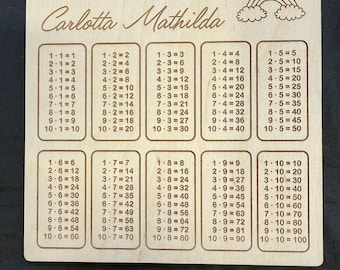 Carlotta Mathilda
1 · 1 = 1
2 · 1 = 2
3 · 1 = 3
4 · 1 = 4
5 · 1 = 5
6 · 1 = 6
7 · 1 = 7
8 · 1 = 8
9 · 1 = 9
10 · 1 = 10
1 · 2 = 2
2 · 2 = 4
3 · 2 = 6
4 · 2 = 8
5 · 2 = 10
6 · 2 = 12
7 · 2 = 14
8 · 2 = 16
9 · 2 = 18
10 · 2 = 20
1 · 3 = 3
2 · 3 = 6
3 · 3 = 9
4 · 3 = 12
5 · 3 = 15
6 · 3 = 18
7 · 3 = 21
8 · 3 = 24
9 · 3 = 27
10 · 3 = 30
1 · 4 = 4
2 · 4 = 8
3 · 4 = 12
4 · 4 = 16
5 · 4 = 20
6 · 4 = 24
7 · 4 = 28
8 · 4 = 32
9 · 4 = 36
10 · 4 = 40
1 · 5 = 5
2 · 5 = 10
3 · 5 = 15
4 · 5 = 20
5 · 5 = 25
6 · 5 = 30
7 · 5 = 35
8 · 5 = 40
9 · 5 = 45
10 · 5 = 50
1 · 6 = 6
2 · 6 = 12
3 · 6 = 18
4 · 6 = 24
5 · 6 = 30
6 · 6 = 36
7 · 6 = 42
8 · 6 = 48
9 · 6 = 54
10 · 6 = 60
1 · 7 = 7
2 · 7 = 14
3 · 7 = 21
4 · 7 = 28
5 · 7 = 35
6 · 7 = 42
7 · 7 = 49
8 · 7 = 56
9 · 7 = 63
10 · 7 = 70
1 · 8 = 8
2 · 8 = 16
3 · 8 = 24
4 · 8 = 32
5 · 8 = 40
6 · 8 = 48
7 · 8 = 56
8 · 8 = 64
9 · 8 = 72
10 · 8 = 80
1 · 9 = 9
2 · 9 = 18
3 · 9 = 27
4 · 9 = 36
5 · 9 = 45
6 · 9 = 54
7 · 9 = 63
8 · 9 = 72
9 · 9 = 81
10 · 9 = 90
1 · 10 = 10
2 · 10 = 20
3 · 10 = 30
4 · 10 = 40
5 · 10 = 50
6 · 10 = 60
7 · 10 = 70
8 · 10 = 80
9 · 10 = 90
10 · 10 = 100